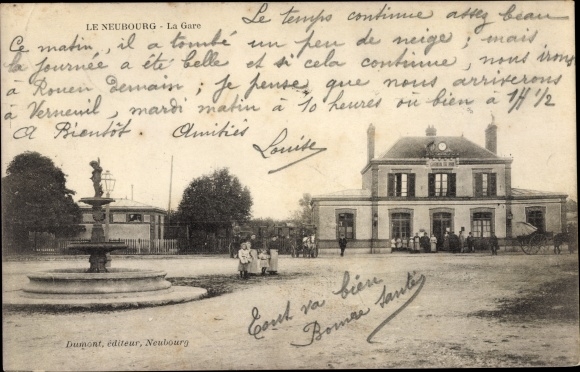 LE NEUBOURG - La Gare
Le temps continue assez beau
Ce matin, il a tombé un peu de neige ; mais
la journée a été belle et si cela continue, nous irons
à Rouen demain ; je pense que nous arriverons
à Verneuil, mardi matin à 10 heures ou bien à 1H 1/2
A Bientôt Amitiés
Louise
Tout va bien
Bonne santé
Dumont, éditeur, Neubourg